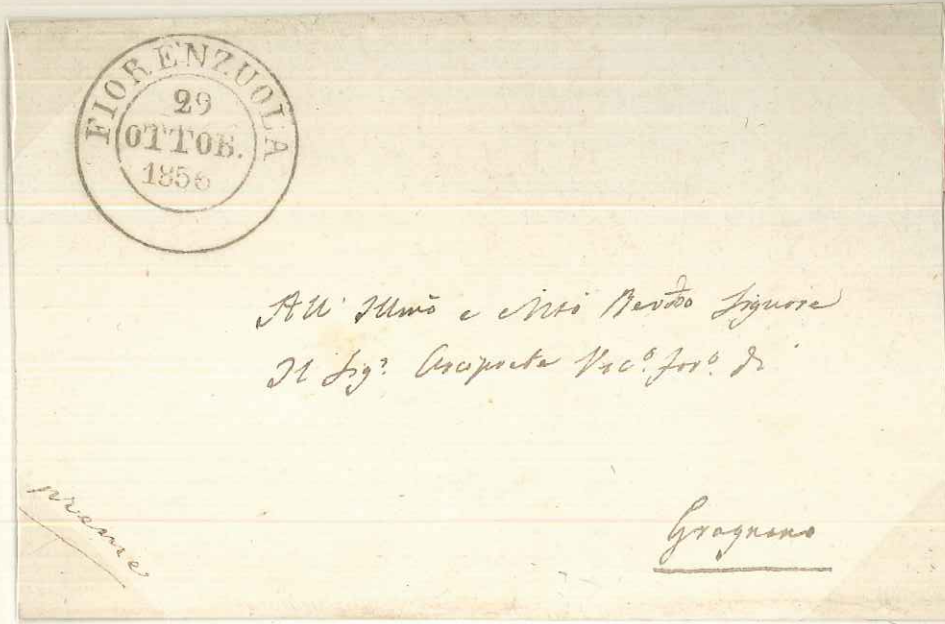 FIORENZUOLA
29
OTTOB.
1856
All' Illmõ e Mtõ Revdõ Signore
Il Sigr. Arciprete Vico. foro. di
Gragnano
preme